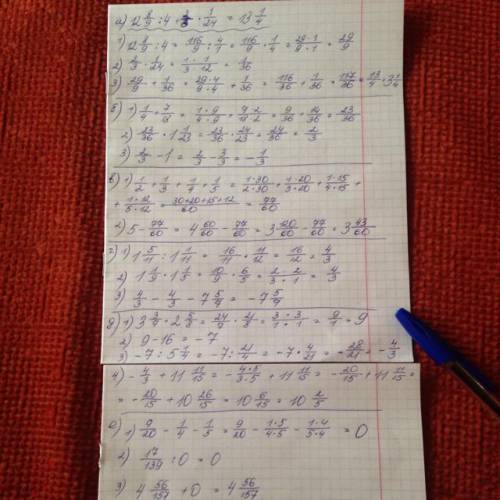 а) 12 8/9 : 4 + 2/3 · 1/24 = 13 1/4
1) 12 8/9 : 4 = 116/9 : 4/1 = 116/9 · 1/4 = 29·1/9·1 = 29/9
2) 2/3 · 1/24 = 1·1/3·12 = 1/36
3) 29/9 + 1/36 = 29·4/9·4 + 1/36 = 116/36 + 1/36 = 117/36 = 13/4 = 3 1/4
б) 1) 1/4 + 7/18 = 1·9/4·9 + 7·2/18·2 = 9/36 + 14/36 = 23/36
2) 23/36 · 1 1/23 = 23/36 · 24/23 = 24/36 = 2/3
3) 2/3 - 1 = 2/3 - 3/3 = - 1/3
в) 1) 1/2 + 1/3 + 1/4 + 1/5 = 1·30/2·30 + 1·20/3·20 + 1·15/4·15 +
+ 1·12/5·12 = 30+20+15+12/60 = 77/60
2) 5 - 77/60 = 4 60/60 - 77/60 = 3 120/60 - 77/60 = 3 43/60
г) 1) 1 5/11 : 1 1/11 = 16/11 · 11/12 = 16/12 = 4/3
2) 1 1/9 · 1 1/5 = 10/9 · 6/5 = 2·2/3·1 = 4/3
3) 4/3 - 4/3 - 7 5/9 = - 7 5/9
д) 1) 3 3/8 · 2 2/3 = 3·3/1·1 = 9/1 = 9
2) 9 - 16 = - 7
3) - 7 : 5 1/4 = - 7 : 21/4 = - 7 · 4/21 = - 28/21 = - 4/3
4) - 4/3 + 11 11/15 = - 4·5/3·5 + 11 11/15 = - 20/15 + 11 11/15 =
= - 20/15 + 10 26/15 = 10 6/15 = 10 2/5
е) 1) 9/20 - 1/4 - 1/5 = 9/20 - 1·5/4·5 - 1·4/5·4 = 0
2) 17/139 : 0 = 0
3) 4 56/157 + 0 = 4 56/157